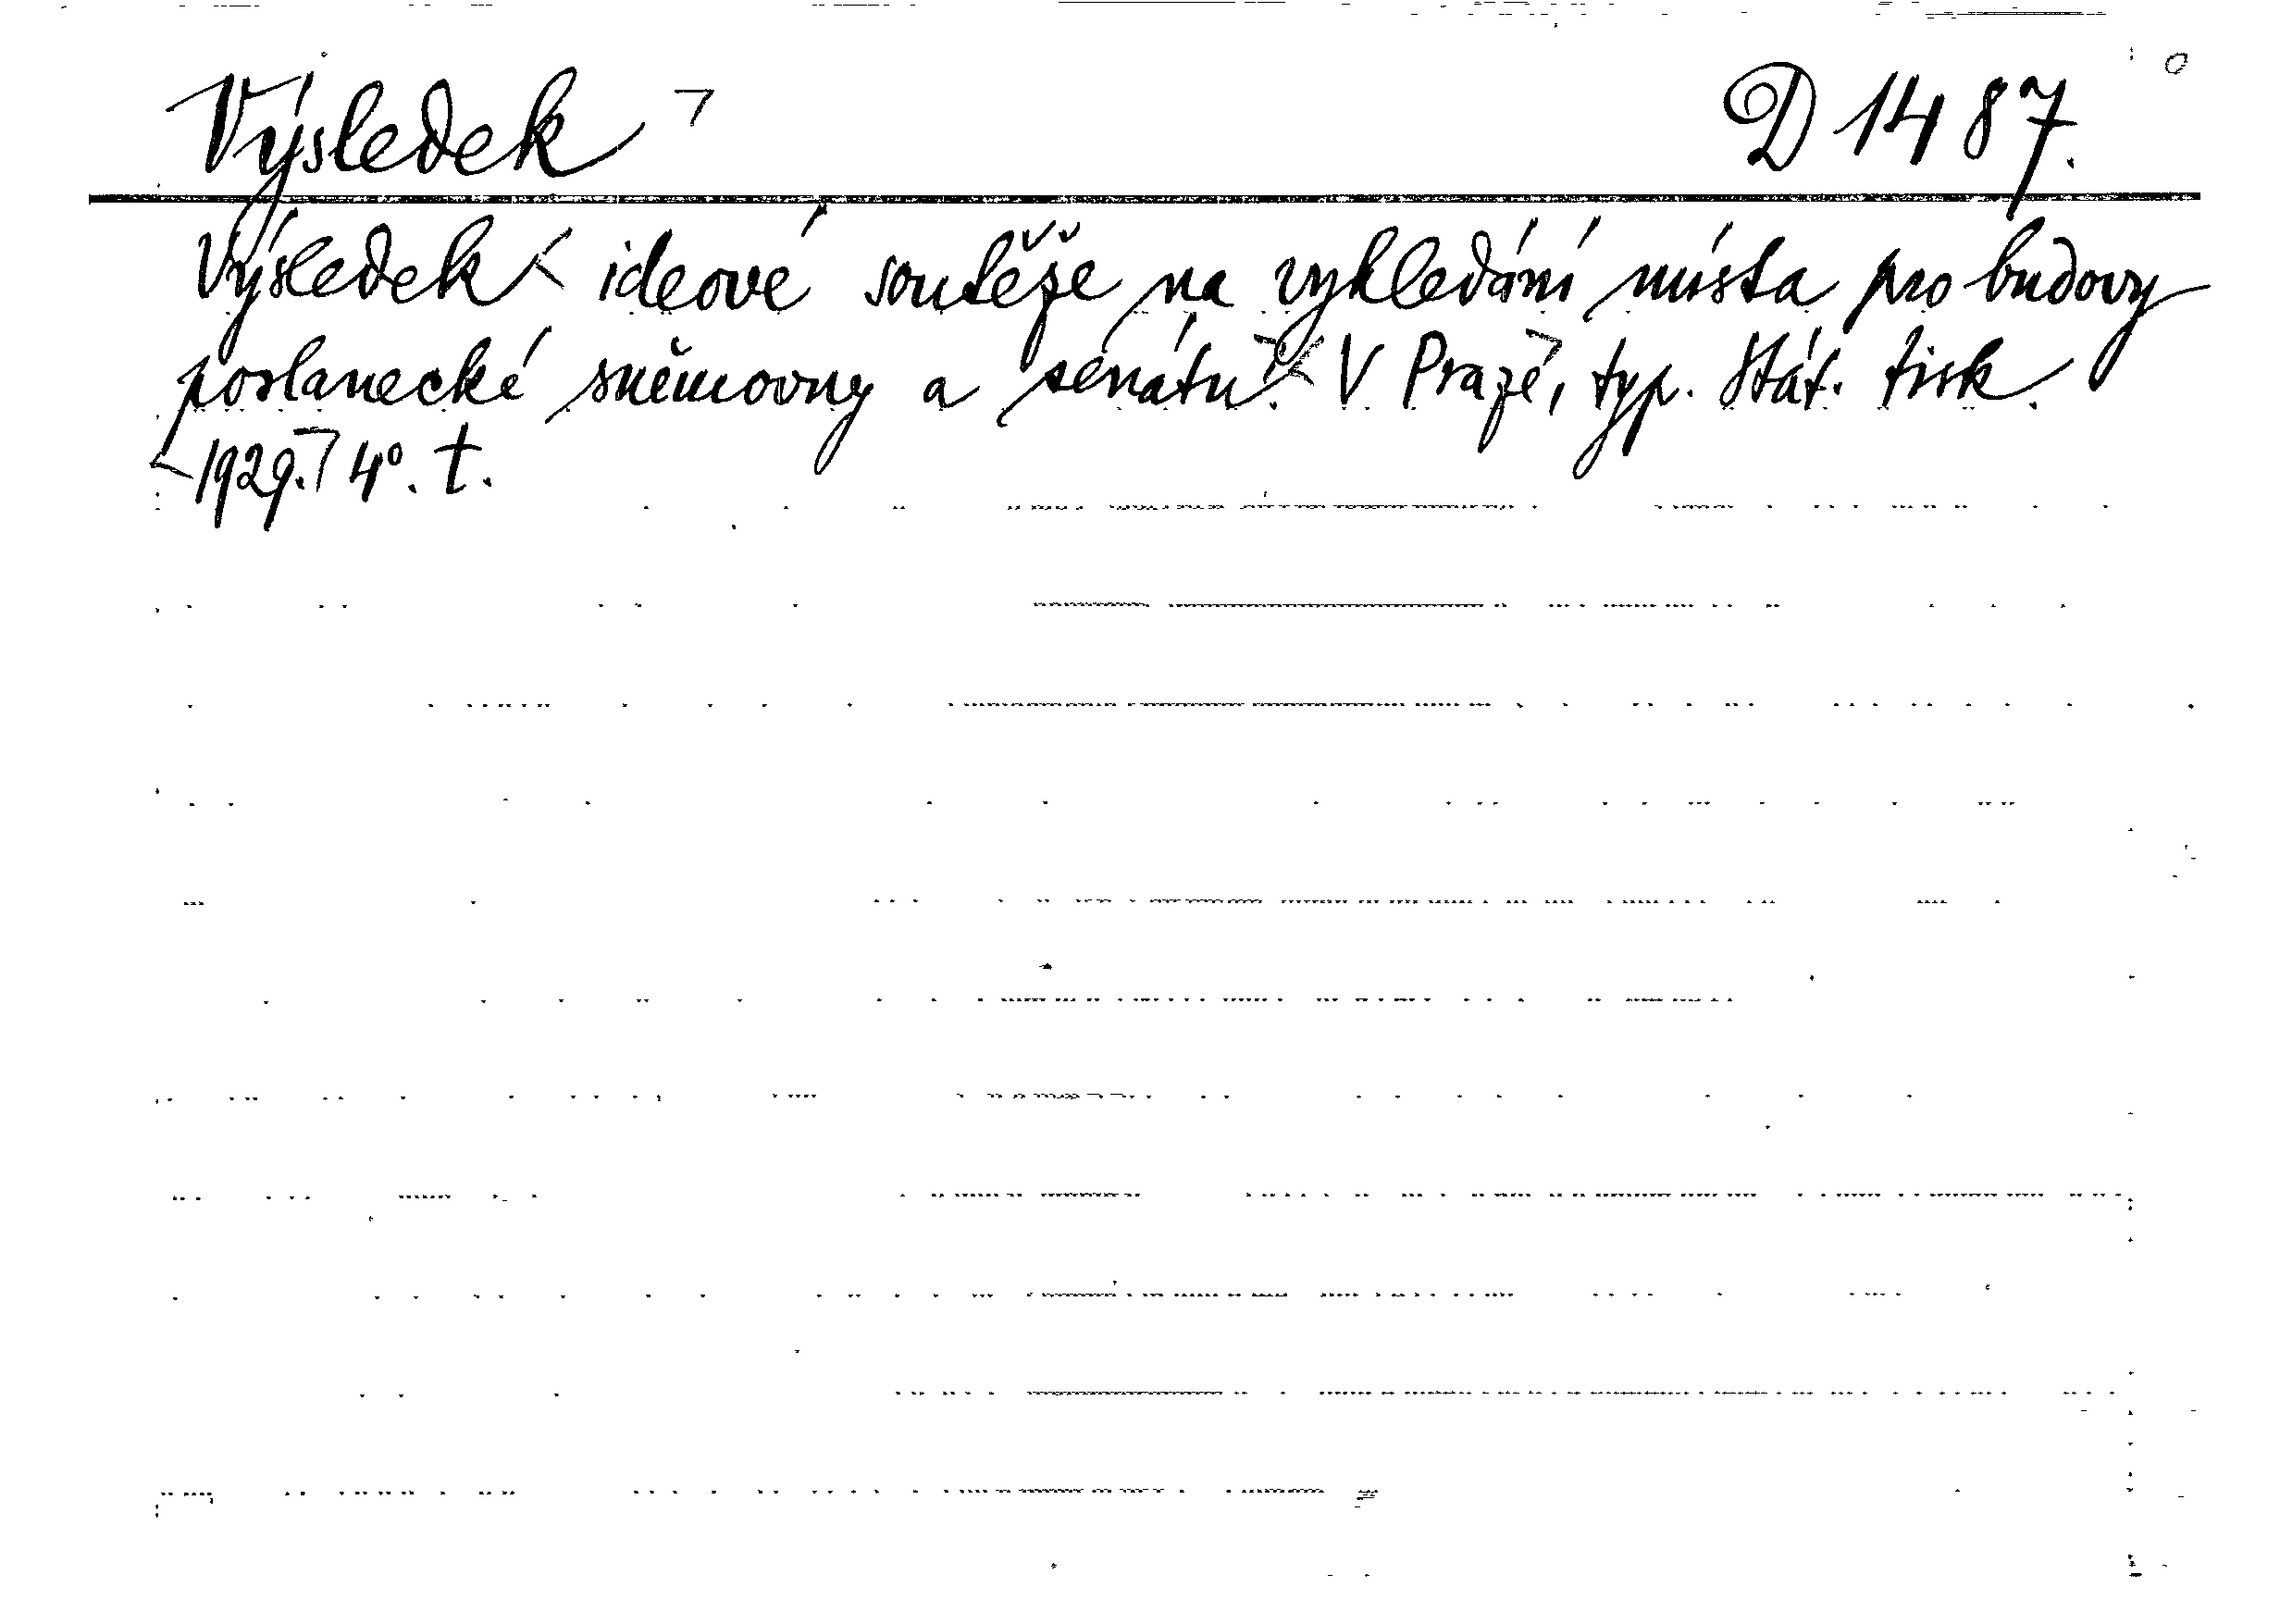 Výsledek D 1487.
Výsledek ideové soutěže na vyhledání místa pro budovy
poslanecké sněmovny a senátu. V Praze, typ. Stát. tisk.
1929. 4°. t.